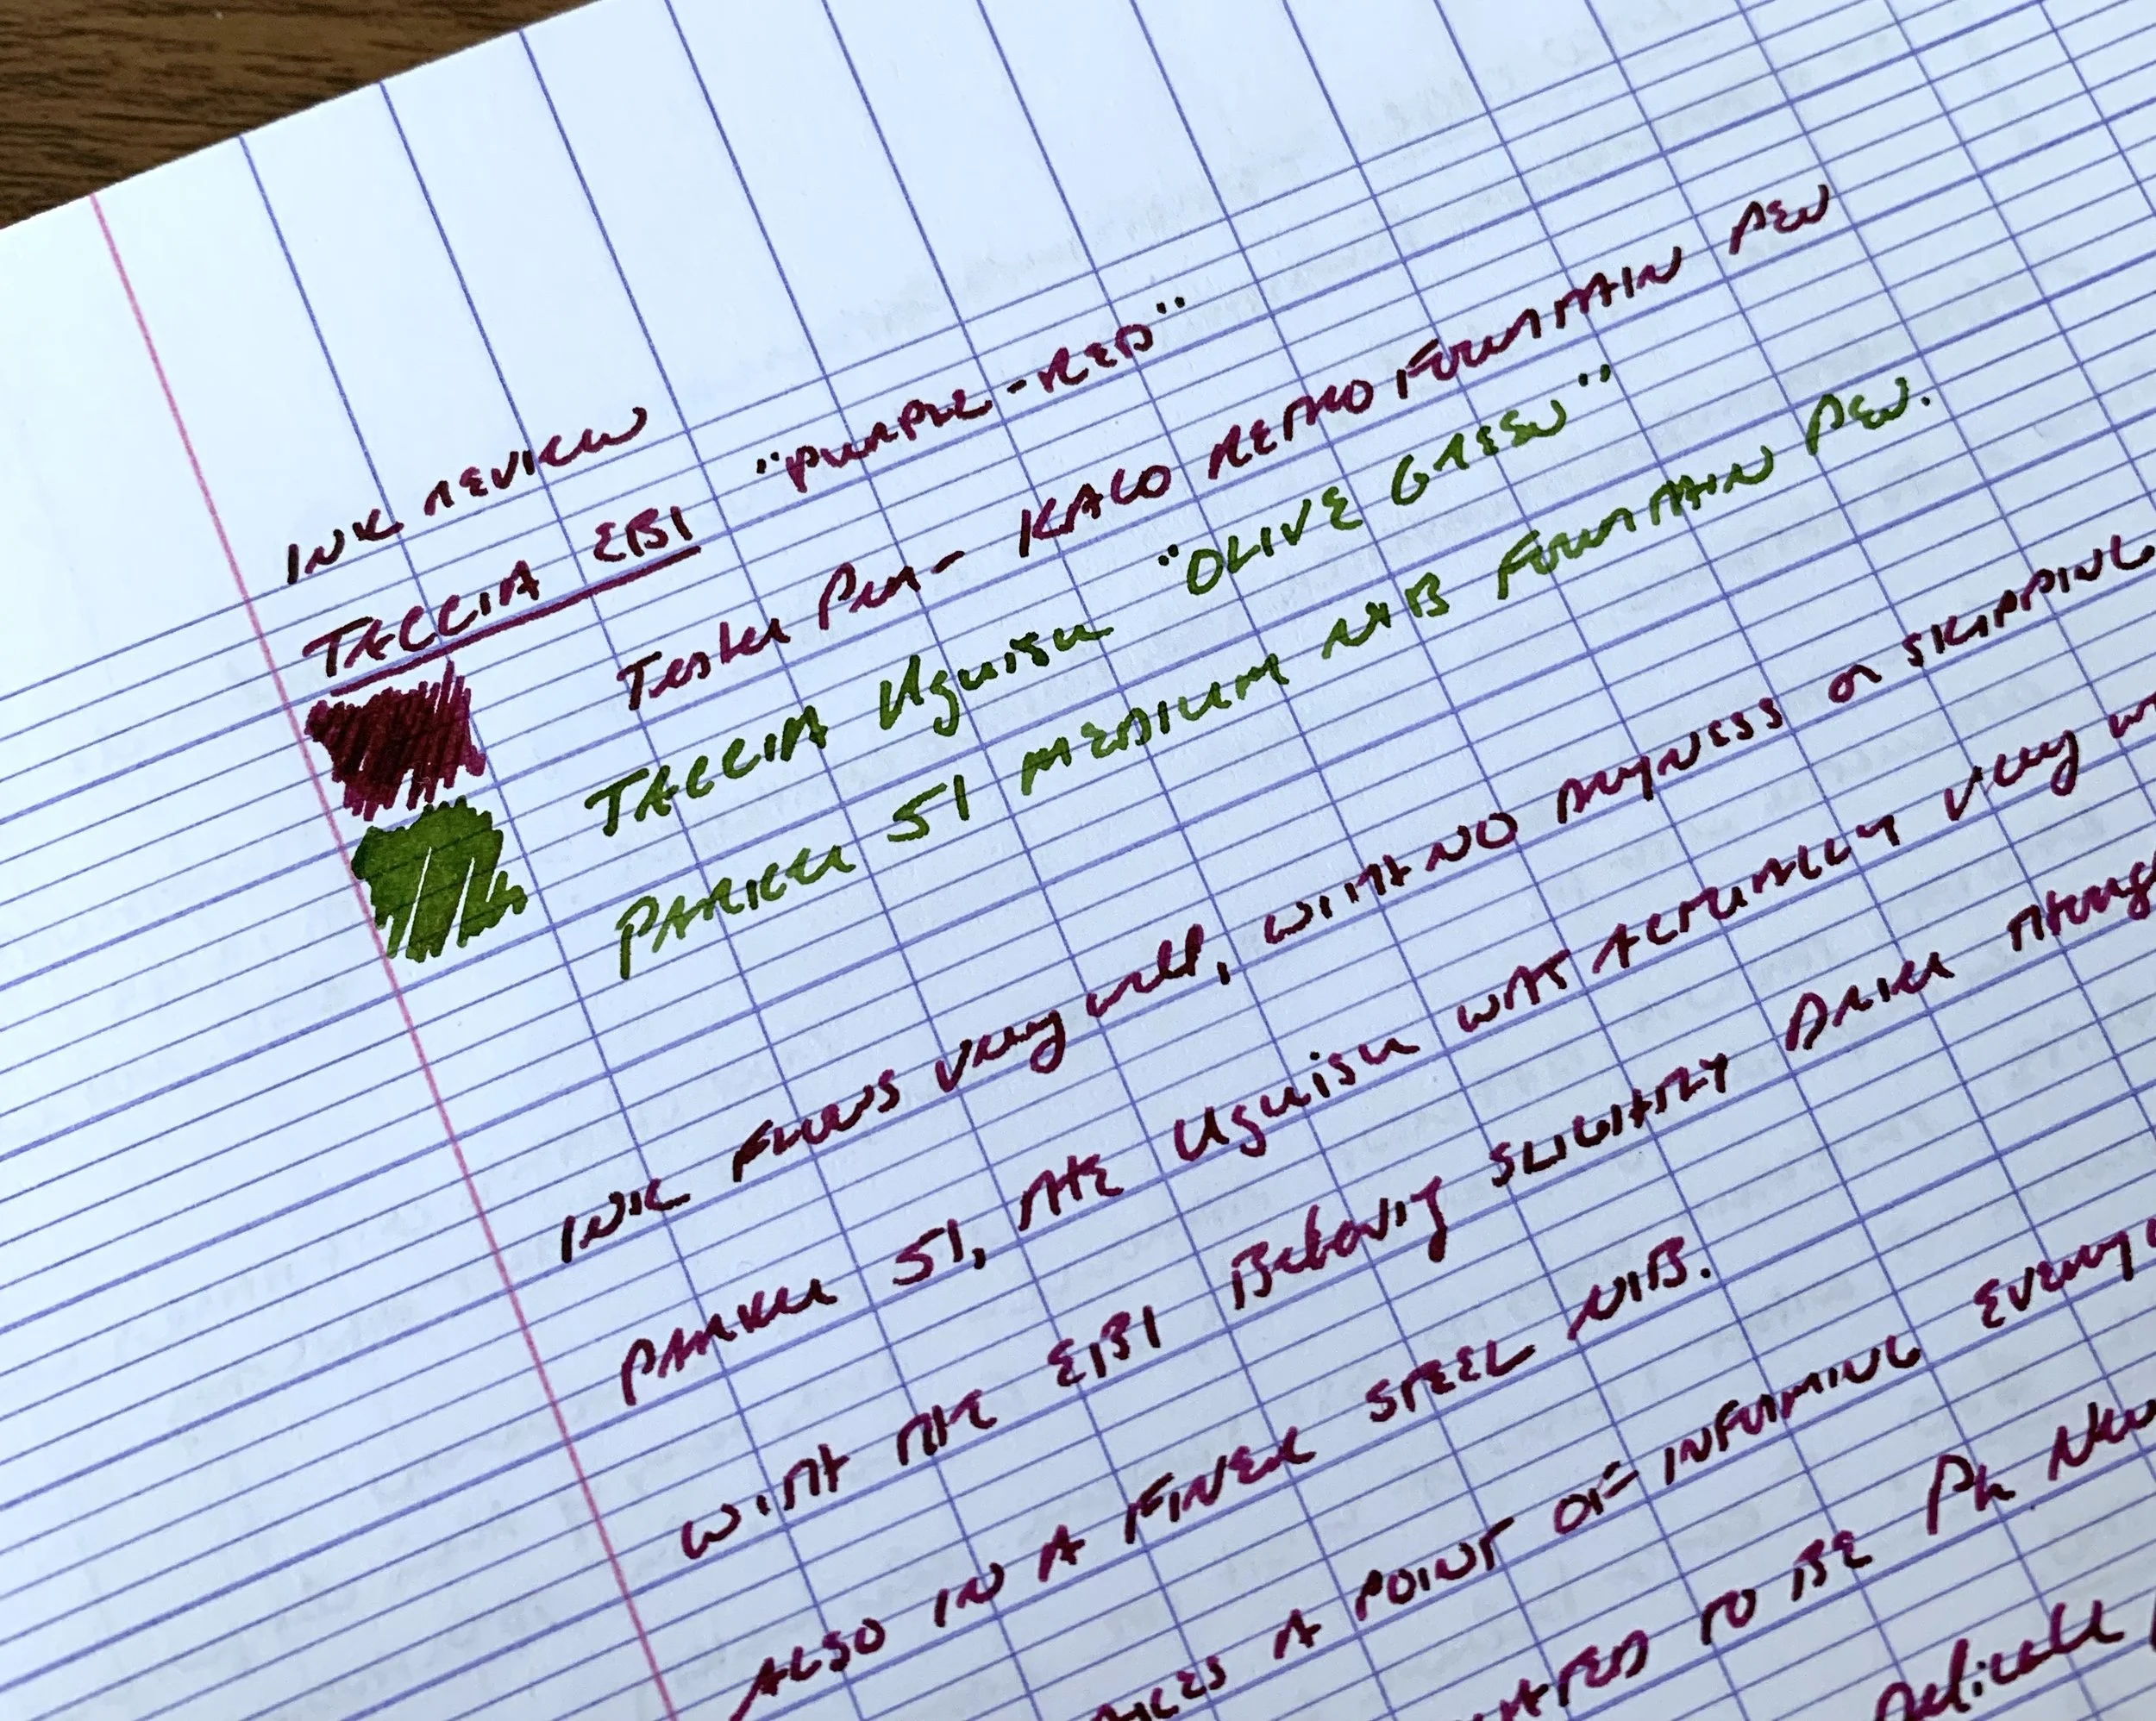 INK REVIEW
TACCIA EBI "PURPLE-RED"
Tester Pen - KACO RETRO FOUNTAIN PEN
TACCIA Uguisu "OLIVE GREEN"
PARKER 51 MEDIUM NIB FOUNTAIN PEN.
INK FLOWS very well, WITH NO DRYNESS or SKIPPING
PARKER 51, THE Uguisu WAS ACTUALLY very
WITH THE EBI Behaving SLIGHTLY DRIER
ALSO IN A FINER STEEL NIB.
A POINT OF INFORMING
TO BE Ph